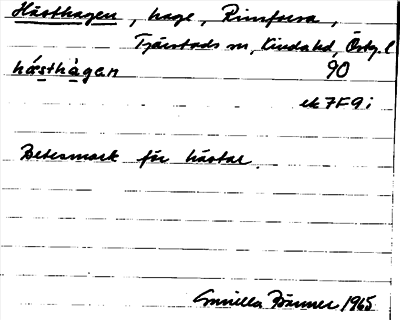 Hästhagen, hage, Rimforsa,
Tjärstads sn, Kinda hd, Östg. l
hástàgen 90
ek 7F9i
Betesmark för hästar.
Gunilla 1965